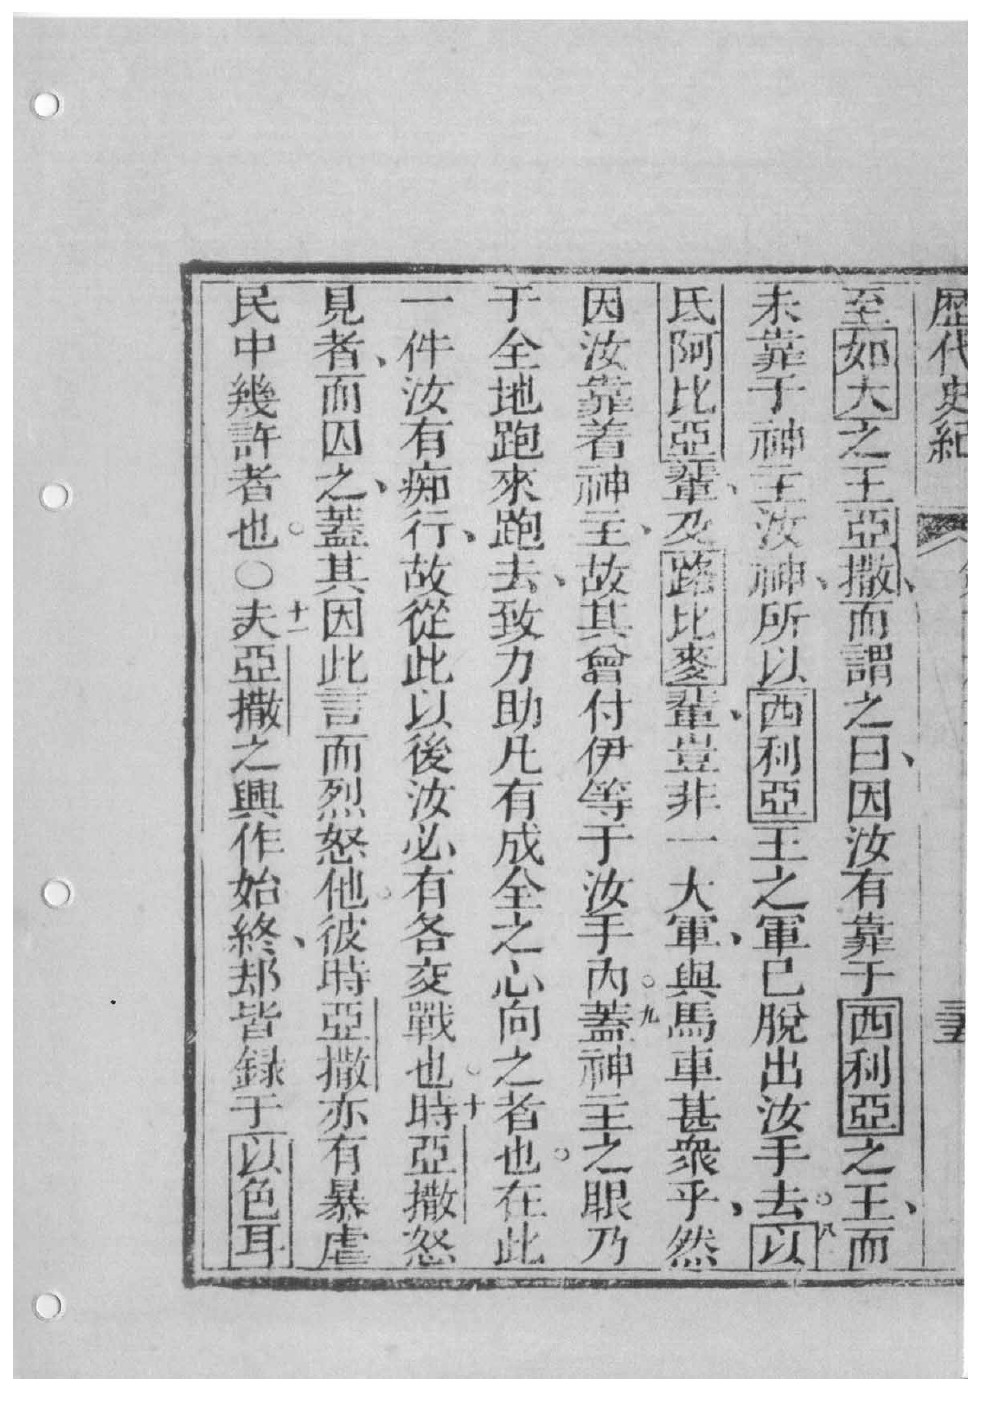 歷代史紀
至如大之王亞撒、而謂之曰、因汝有靠于西利亞之王、而
未靠于神主汝神、所以西利亞王之軍已脫出汝手去。八以
氐阿比亞輩、及路比麥輩、豈非一大軍、與馬車甚衆乎、然
因汝靠着神主、故其曾付伊等于汝手內。九蓋神主之眼乃
于全地跑來跑去、致力助凡有成全之心向之者也。在此
一件汝有痴行、故從此以後汝必有各交戰也。十時亞撒怒
見者、而囚之、蓋其因此言而烈怒他。彼時亞撒亦有暴虐
民中幾許者也。○十一夫亞撒之興作始終、却皆録于以色耳